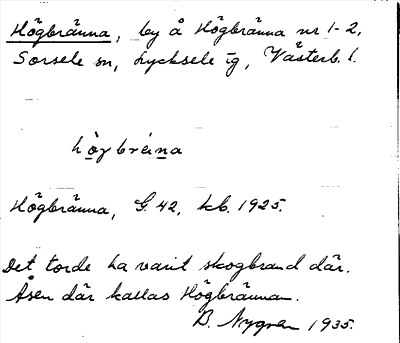 Högbränna, by å Högbränna nr 1-2,
Sorsele sn, Lycksele tg, Västerb. l.
Högbränna, G. 42, kb. 1925.
Det torde ha varit skogbrand där.
Åsen där kallas Högbrännan.
B. Nygren 1935.